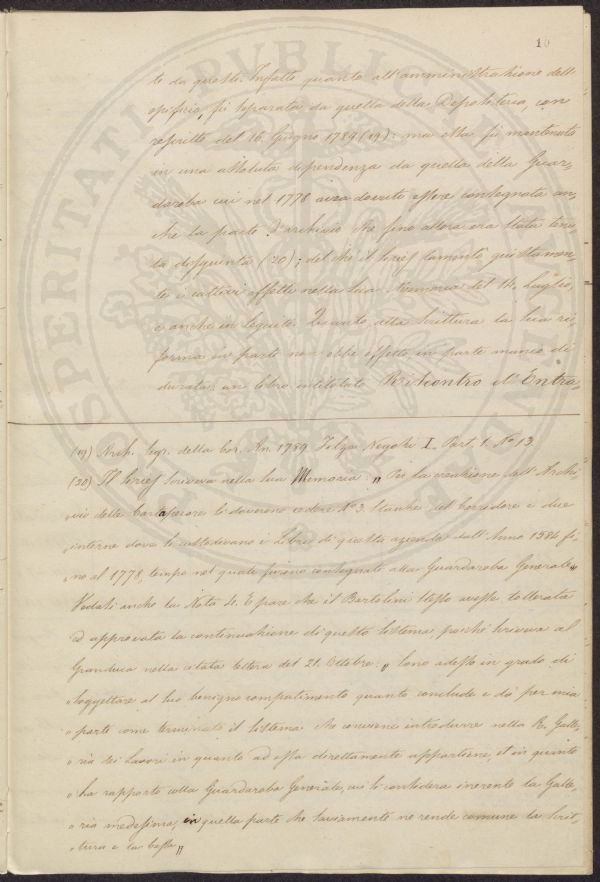 10
te da queste. Infatti quanto all'amministrazione dell'
opificio, fu separata da quella della Depositeria, con
rescritto del 16. Giugno 1789 (19): ma ella fu mantenuta
in una assoluta dipendenza da quella della Guar,
daroba cui nel 1778 avea dovuto essere consegnata an,
che la parte d'archivio che fino allora era stata tenu,
ta disgiunta (20); del che il Krief lamentò giustamen,
te i cattivi effetti nella sua Memoria del 14. Luglio,
e anche in seguito. Quanto alla scrittura la sua ri,
forma in parte non ebbe effetto, in parte mancò di
durata; un libro intitolato Riscontro d'Entra,
(19) Arch. segr. della cor. An. 1789 Filza Negozi I. Part. 1. N.º 13.
(20) Il Krief scriveva nella sua Memoria: „ Per la creazione dell'Archi,
vio delle si doverono cedere N.º 3. stanze del corridore e due
„ interne dove si custodivano i Libri di questa azienda dall'Anno 1584 fi,
„ no al 1778, tempo nel quale furono consegnati alla Guardaroba Generale „
Vedasi anche la Nota 4. E pare che il Bartolini stesso avesse tollerata
ed approvata la continuazione di questo sistema, poichè scriveva al
Granduca nella citata lettera del 21. Ottobre: „ Sono adesso in grado di
„ soggettare al suo benigno compatimento quanto conclude e dà per mia
„ parte come terminato il sistema che conviene introdurre nella R. Galle,
„ ria dei Lavori in quanto ad essa direttamente appartiene, et in quanto
„ ha rapporto colla Guardaroba Generale, cui si considera inerente la Galle,
„ ria medesima, in quella parte che variamente ne rende comune la scrit,
„ tura e la cassa „
SPERITATI PVBLICAE